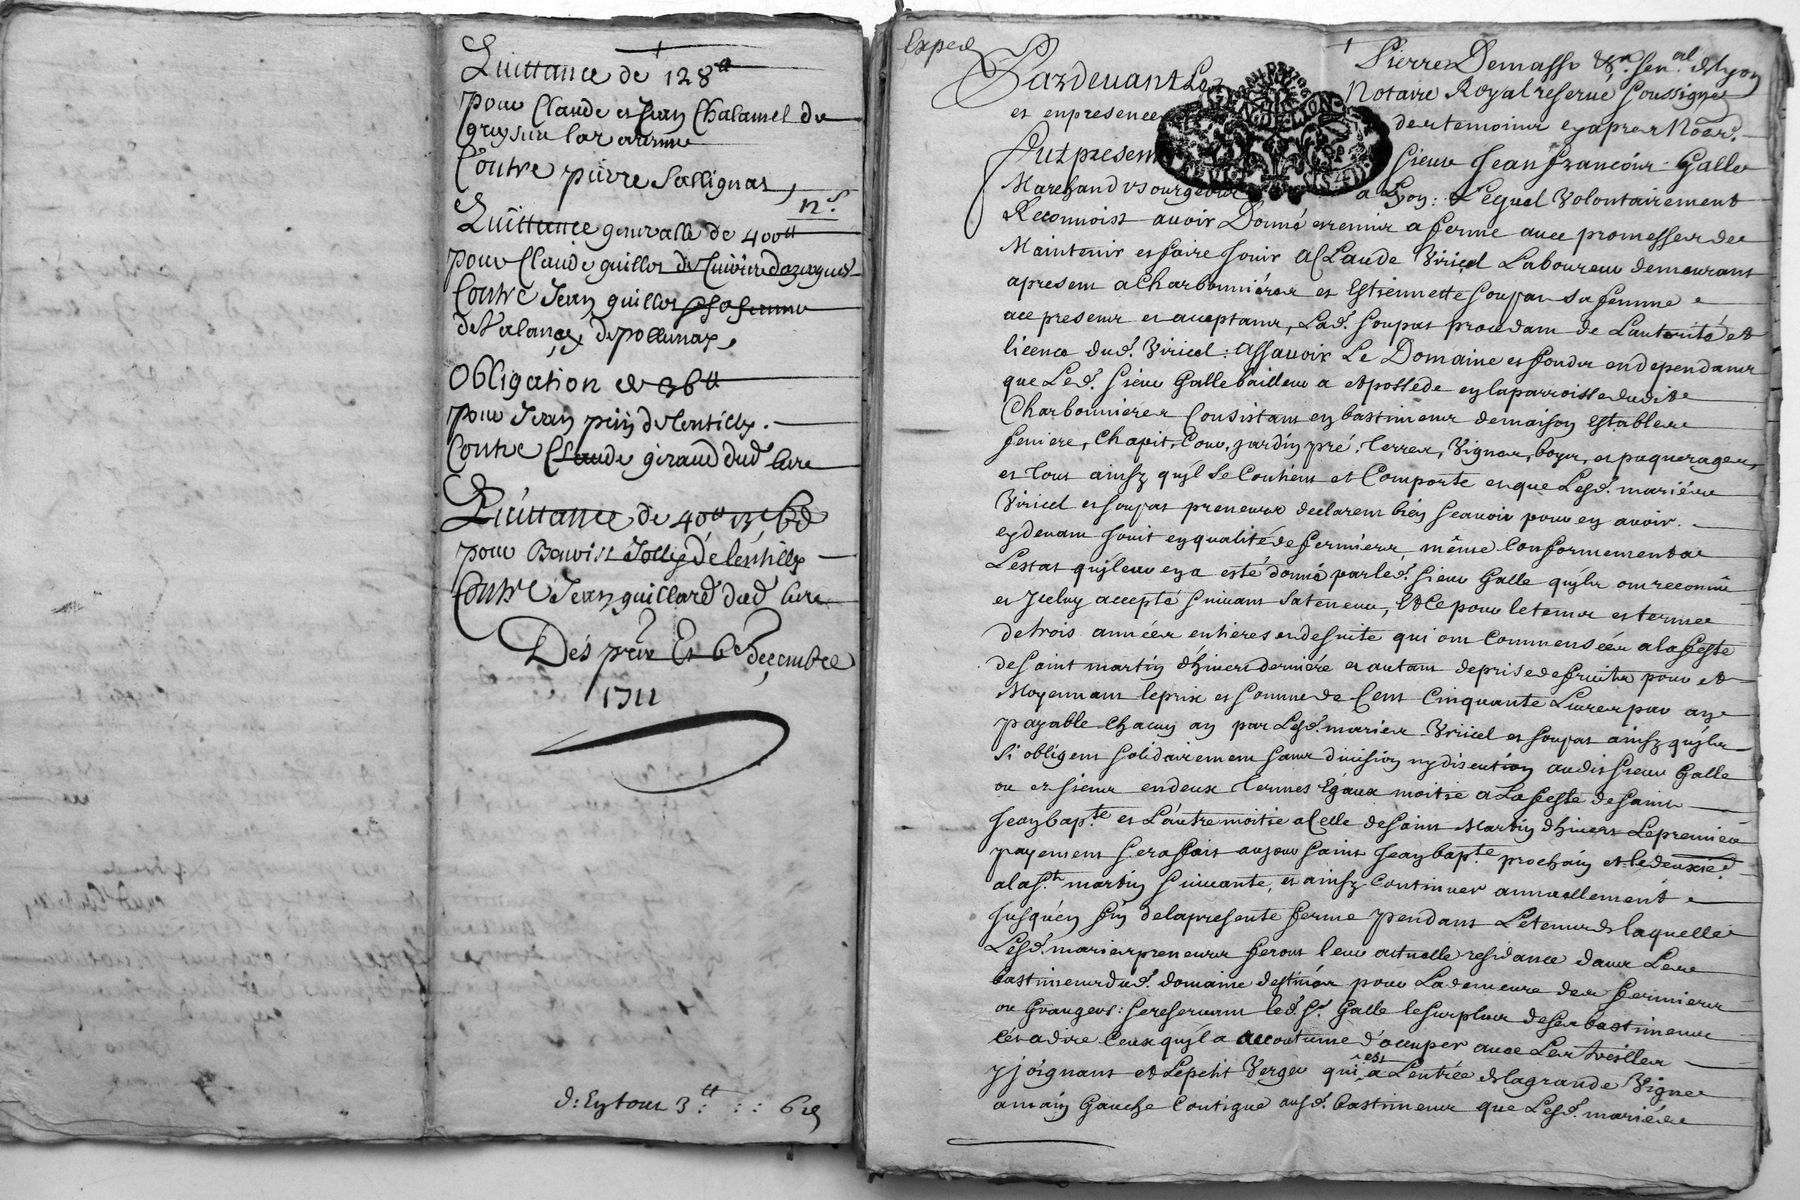 Quittance de 128ᵗᵗ
pour Claude et Jean Chalamel de
Contre pierre Sallignat,
12ˢ
Quittance generalle de 400ᵗᵗ
pour Claude guillot de Cuivre d'azergues
Contre Jean guillot sa femme
de Valance, de pollienay,
Obligation de 96ᵗᵗ
pour Jean piin de Lentilly.
Contre Claude giraud dud. lieu
Quittance de 40ᵗᵗ 13ˢ 6d
pour Benoist Jolly de Lentilly
Contre Jean guillard dud. lieu
Des prir Et 6ᵉ decembre
1711
d: Ey tour 3ᵗᵗ : : : 6
Exped
Pardevant Le Pierre Demasso Senᵃˡ de Lyon
Notaire Royal reservé soussigné
et en presence des temoins cy apres Noᵉᵈ.
Fut present Sieur Jean francois Galle
Marchand Bourgeois a Lyon: Lequel Volontairement
Reconnoist avoir Donné et remis a ferme avec promesses de
Maintenir et faire Jouir a Claude Viricel Laboureur demeurant
a present a Charbonnieres et Estiennette Soupat sa femme
ace presens et acceptans, Lad. Soupat procedant de Lautorité et
licence dud. Viricel: Assavoir Le Domaine et fonds en dependans
que Led. Sieur Galle bailleur a et possede en la parroisse dudit
Charbonnieres Consistant en bastimens de maison Establerie
feniere, Chapit, Cour, jardin, pré, Terres, Vignes, boys, et paquerages,
et tout ainsy qu'il se Contient et Comporte et que Lesd. mariés
Viricel et Soupat preneurs declarent bien scavoir pour en avoir
cy devant Jouit en qualité de fermiers, même Conformement a
Lestat qu'il leur en a esté donné par led. Sieur Galle qu'ils ont reconnu
et Iceluy accepté suivant sa teneur, Et Ce pour le tems et terme
de trois années entieres et de suite qui ont Commensées a la feste
de Saint martin d'hivert derniere et autant de prises de fruits pour et
Moyennant le prix et somme de Cent Cinquante Livres par an
payable chacun an par Lesd. mariés Viricel et Soupat ainsy qu'ils
si obligent solidairement sans division ny discution audit Sieur Galle
ou es siens en deux Termes Egaux moitie a La feste de Saint
Jean bapᵗᵉ et L'autre moitie a Celle de Saint Martin d'hivert Le premier
payement se rafait au jour Saint Jean bapᵗᵉ prochain et le deuxᵉ.
a la Sᵗ martin suivante, et ainsy Continuer annuellement
Jusqu'en fin de la presente ferme pendant Le tems de laquelle
Lesd. mariés preneurs feront leur actuelle residance dans Les
bastimens dud. domaine destinés pour La demeure des fermiers
ou Grangers: se reservant led. Sʳ. Galle le surplus de ses bastimens
C'est a dire Ceux qu'il a accoutumé d'occuper avec Les treilles
y joignans et Le petit Verger qui est a L'entrée de la grande Vigne
a main Gauche Contigue ausd. bastimens que Lesd. mariés